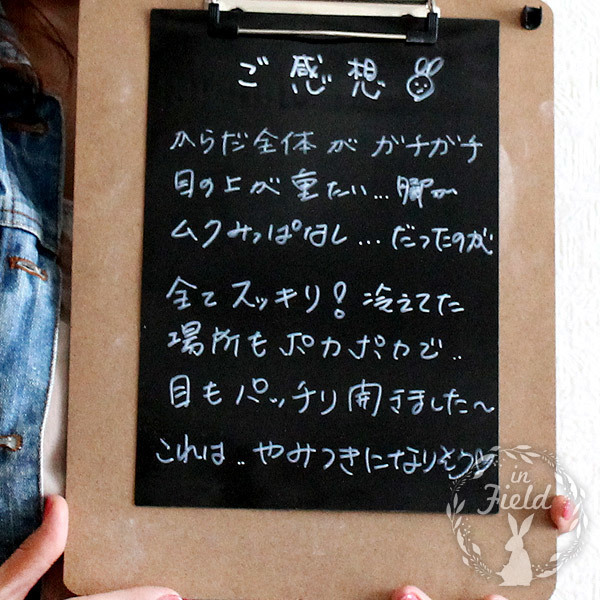 ご感想
からだ全体が ガチガチ
目の上が重たい... 脚が
ムクみっぱなし... だったのが
全てスッキリ! 冷えてた
場所もポカポカで..
目もパッチリ開きました〜
これは..やみつきになりそう♡
in
Field